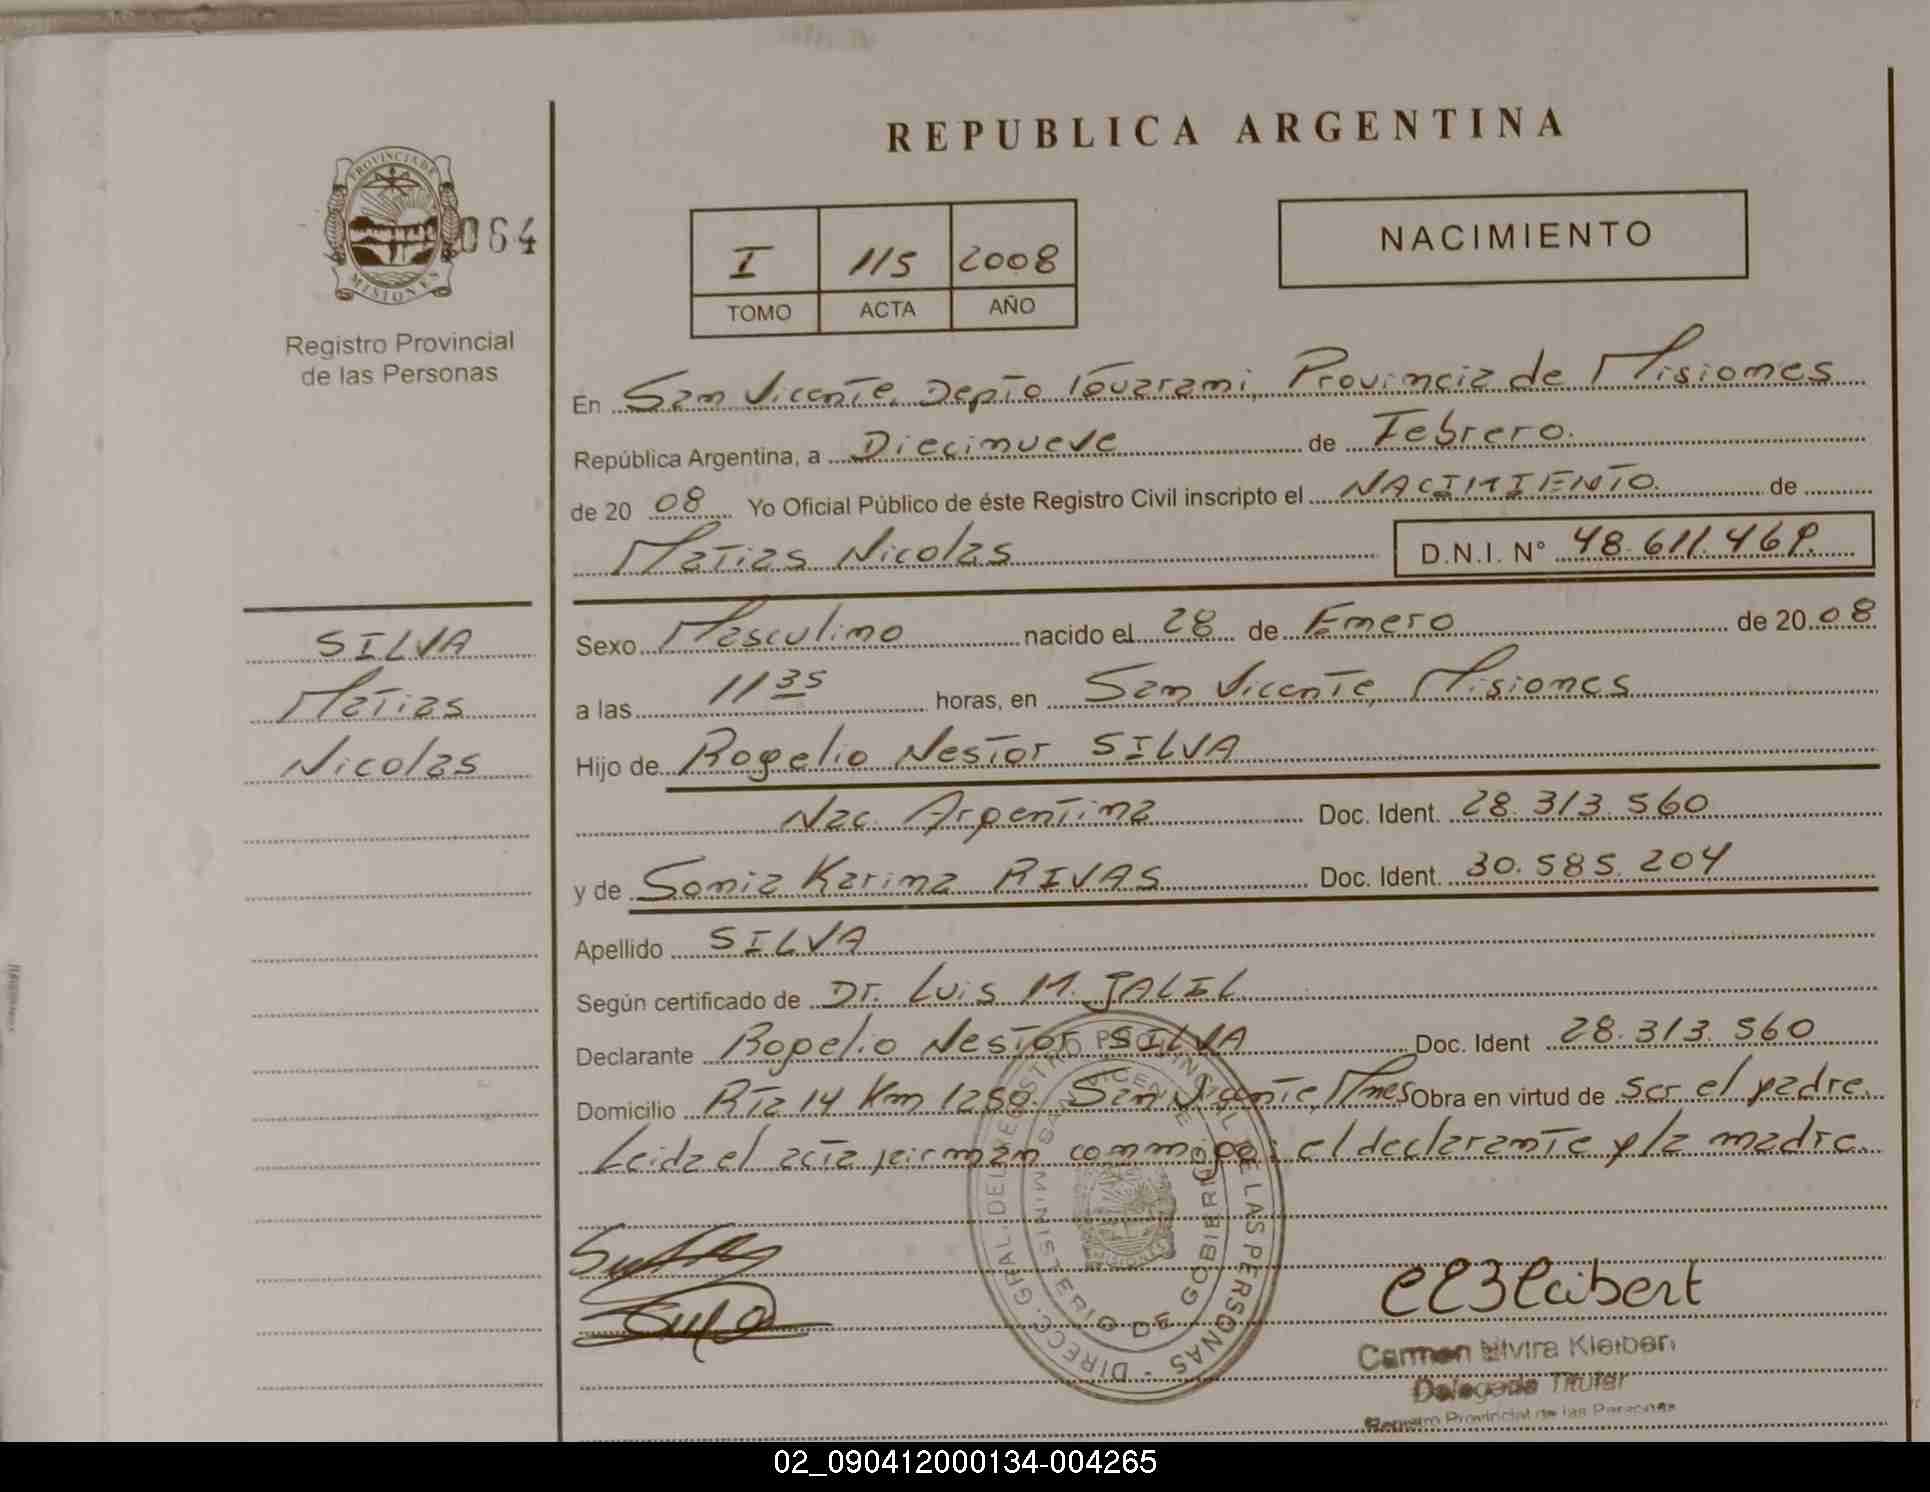 REPUBLICA ARGENTINA
PROVINCIA DE MISIONES
064
Registro Provincial
de las Personas
I 115 2008
TOMO ACTA AÑO
NACIMIENTO
En San Vicente, Depto Guarani, Provincia de Misiones
República Argentina, a Diecinueve de Febrero.
de 20 08 Yo Oficial Público de éste Registro Civil inscripto el NACIMIENTO. de
Matias Nicolas D.N.I. N° 48.611.469.
SILVA
Matias
Nicolas
Sexo Masculino nacido el 28 de Enero de 20 08
a las 11 35 horas, en San Vicente, Misiones
Hijo de Rogelio Nestor SILVA
Nac. Argentina Doc. Ident. 28.313.560
y de Sonia Karina RIVAS Doc. Ident. 30.585.204
Apellido SILVA
Según certificado de Dr. Luis M. JALIL
Declarante Rogelio Nestor SILVA Doc. Ident 28.313.560
Domicilio Rta 14 Km 1250. San Vicente, Mnes Obra en virtud de ser el padre.
Leida el acta firman conmigo: el declarante y la madre.
DIRECC. GRAL. DEL REGISTRO PROVINCIAL DE LAS PERSONAS -
SAN VICENTE
MINISTERIO DE GOBIERNO
MISIONES
Carmen Elvira Kleibert
Delegada Titular
Registro Provincial de las Personas
02_090412000134-004265